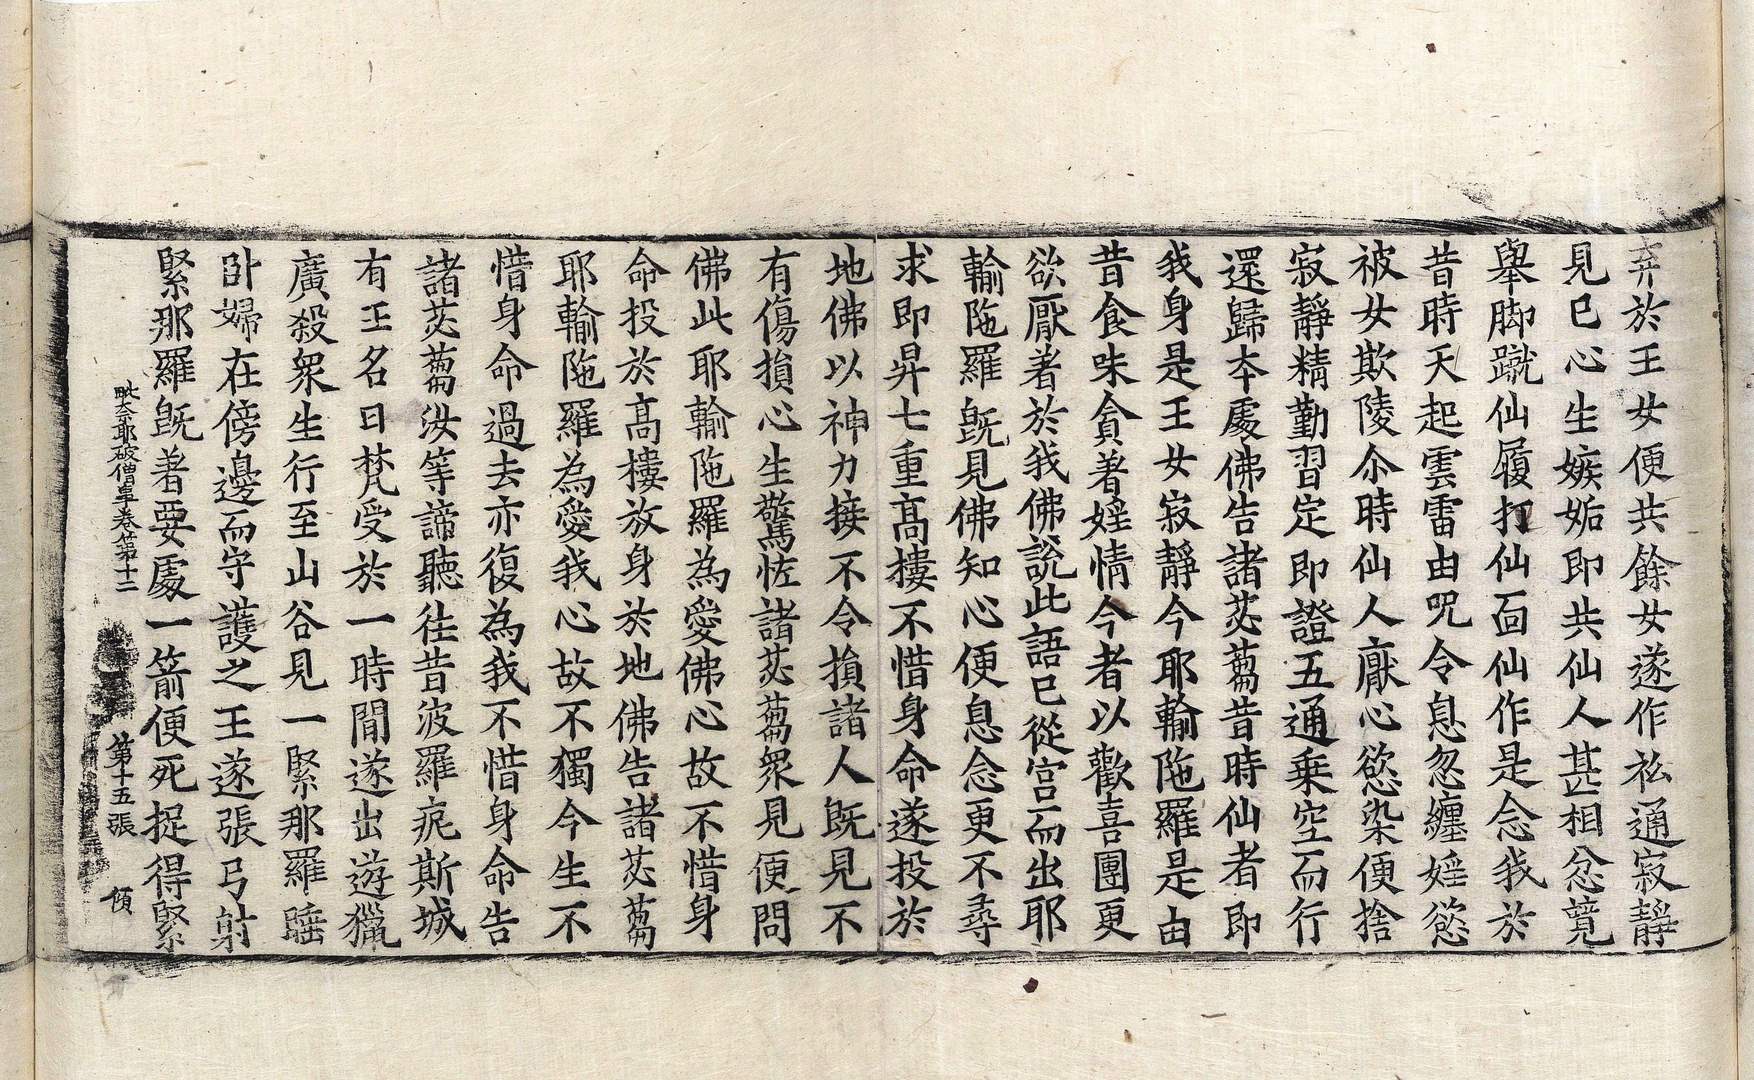 弃於王女便共餘女遂作私通寂靜
見已心生嫉妬即共仙人甚相忿競
舉脚蹴仙履打仙面仙作是念我於
昔時天起雲雷由呪令息忽纏婬慾
被女欺陵尒時仙人厭心慾染便捨
寂靜精勤習定即證五通乗空而行
還歸夲處佛告諸苾蒭昔時仙者即
我身是王女寂靜今耶輸陁羅是由
昔食味貪著婬情今者以歡喜團更
欲厭著於我佛說此語已從宮而出耶
輸陁羅旣見佛知心便息念更不尋
求即昇七重髙樓不惜身命遂投於
地佛以神力接不令損諸人旣見不
有傷損心生驚恠諸苾蒭衆見便問
佛此耶輸陁羅為愛佛心故不惜身
命投於髙樓放身於地佛告諸苾蒭
耶輸陁羅為愛我心故不獨今生不
惜身命過去亦復為我不惜身命告
諸苾蒭汝等諦聽徃昔波羅痆斯城
有王名曰梵受於一時間遂出遊獵
廣殺衆生行至山谷見一緊那羅睡
卧婦在傍邊而守護之王遂張弓射
緊那羅旣著要處一箭便死捉得緊
毗奈耶破僧事卷第十二 第十五張